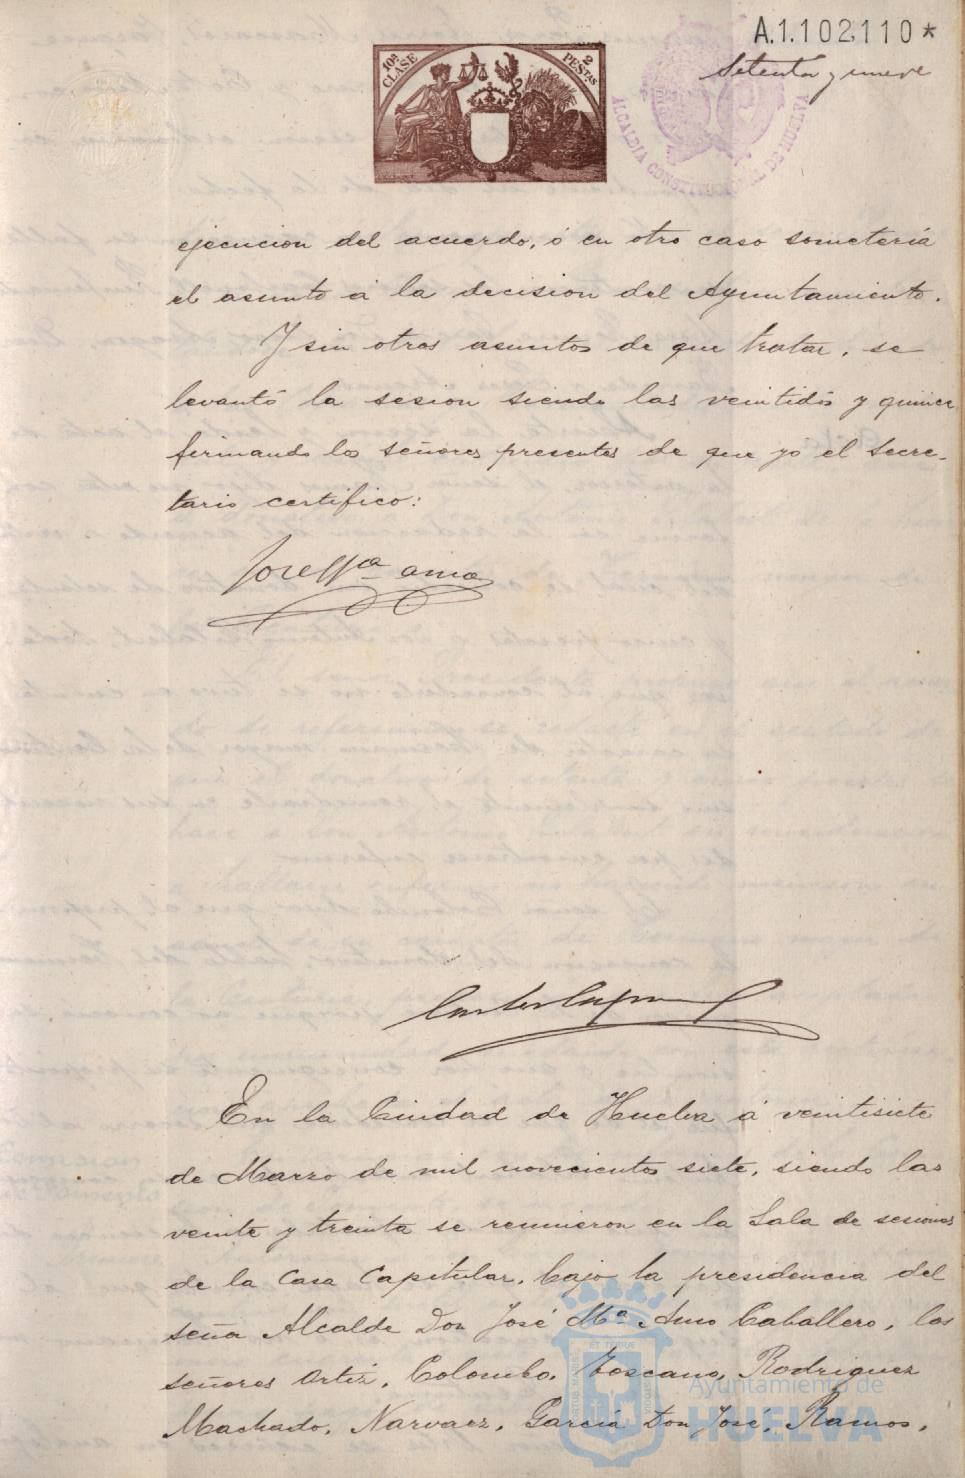 A.1.102.110*
Setenta y nueve
10ª CLASE
2 PESTAS
ALCALDIA CONSTITUCIONAL DE HUELVA
ejecucion del acuerdo, ó en otro caso someteria
el asunto á la decision del Ayuntamiento.
Y sin otros asuntos de que tratar, se
levantó la sesion siendo las veintidós y quince
firmando los señores presentes de que yo el Secre-
tario certifico:
En la Ciudad de Huelva á veintisiete
de Marzo de mil novecientos siete, siendo las
veinte y treinta se reunieron en la Sala de sesiones
de la Casa Capitular, bajo la presidencia del
señor Alcalde Don José Mª Amo Caballero, los
señores Ortiz, Colombo, Toscano, Rodriguez
Machado, Narvaez, Garcia Don José, Ramos,
Ayuntamiento de
HUELVA